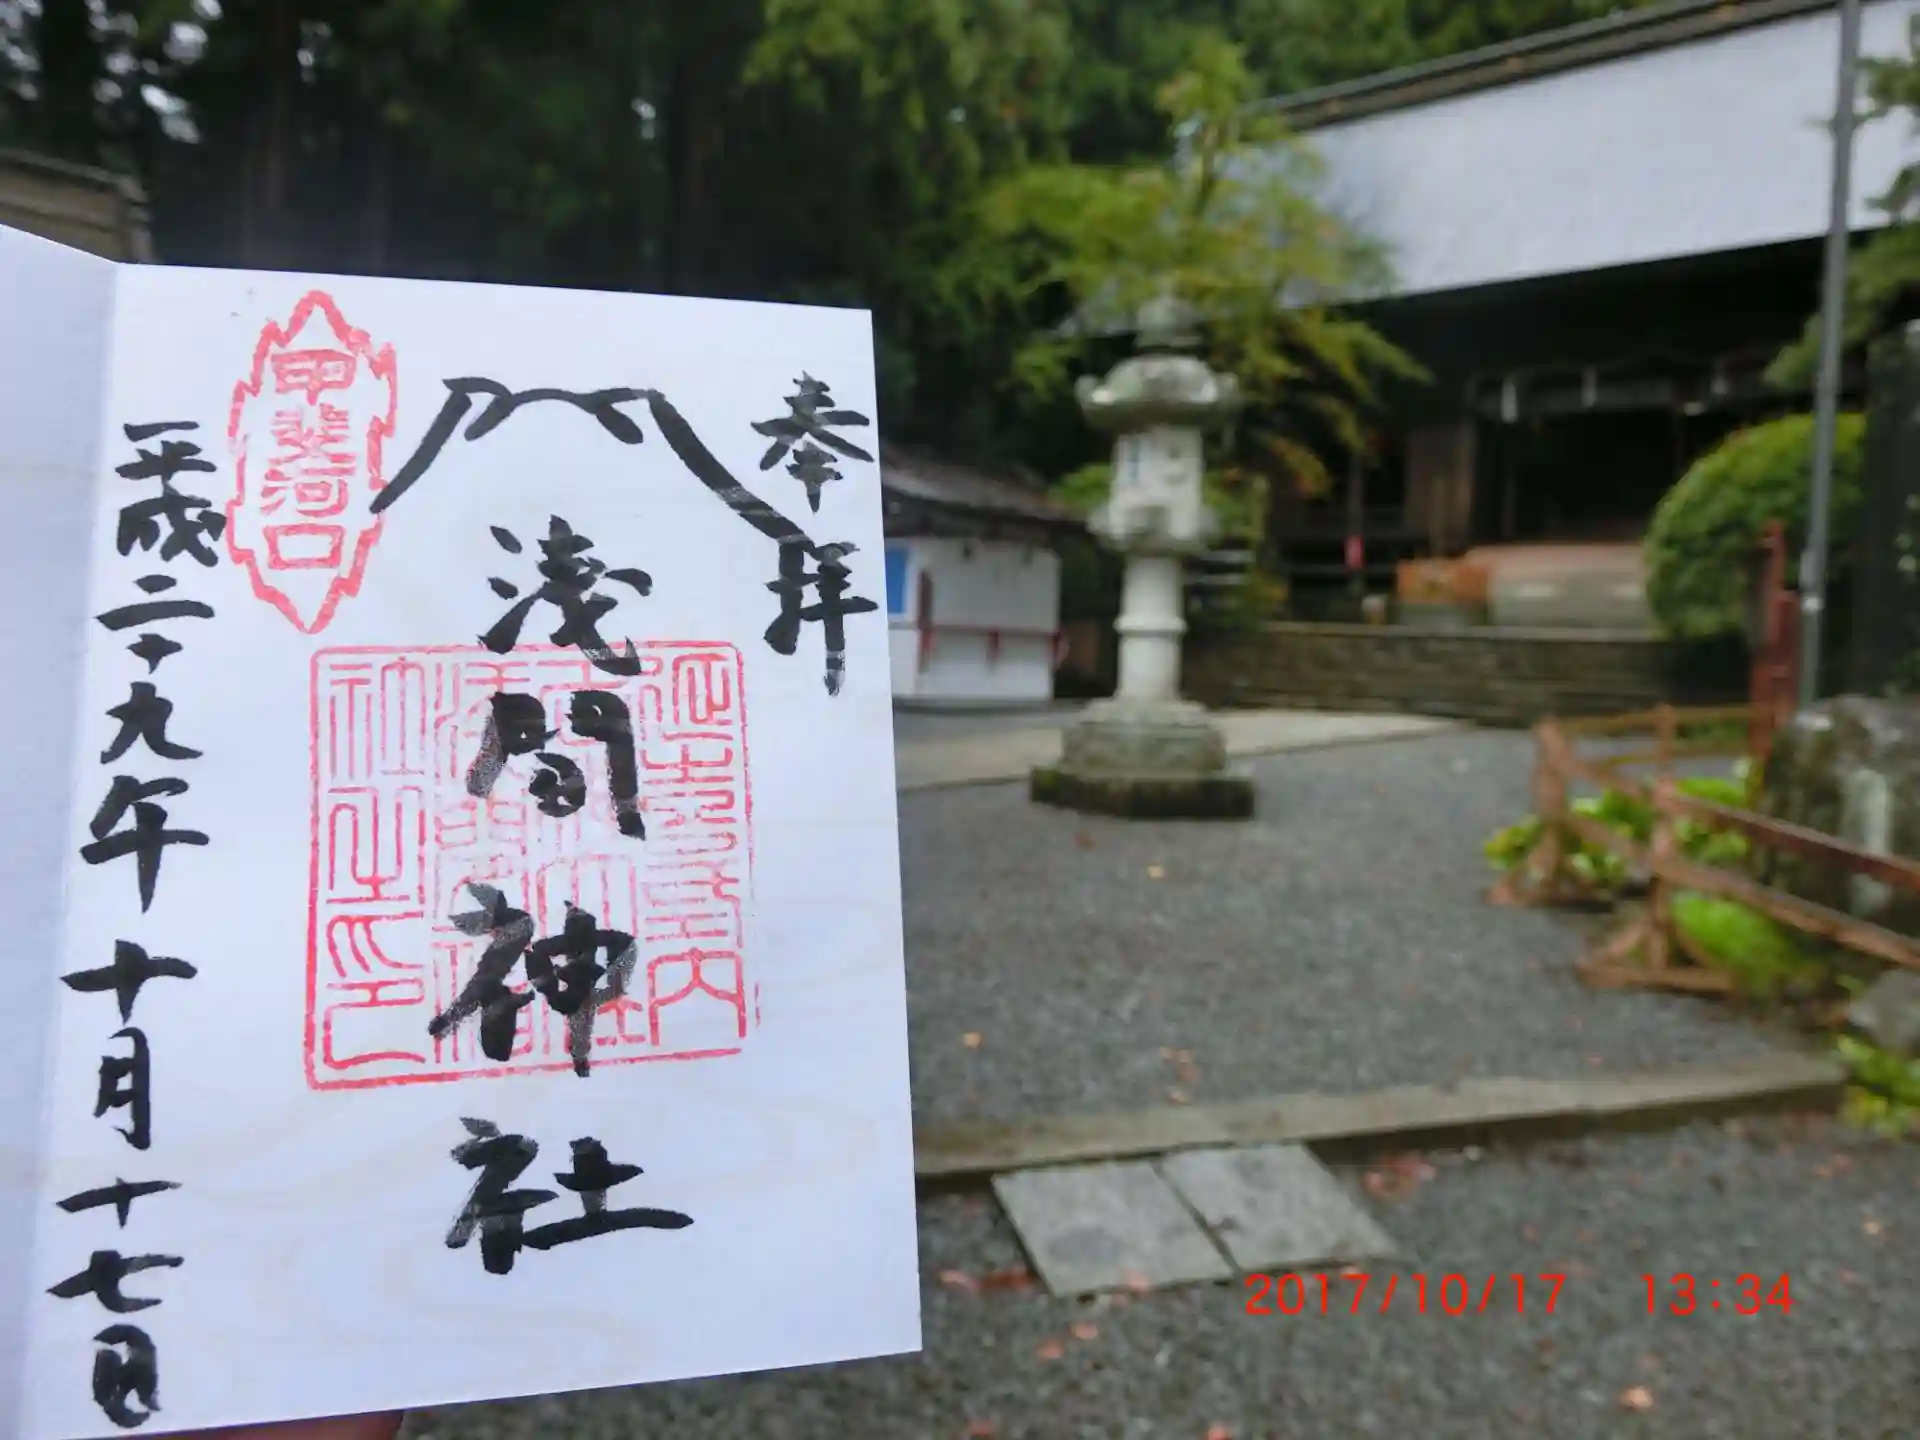 奉拝
淺間神社
甲斐河口
平成二十九年十月十七日
2017/10/17 13:34